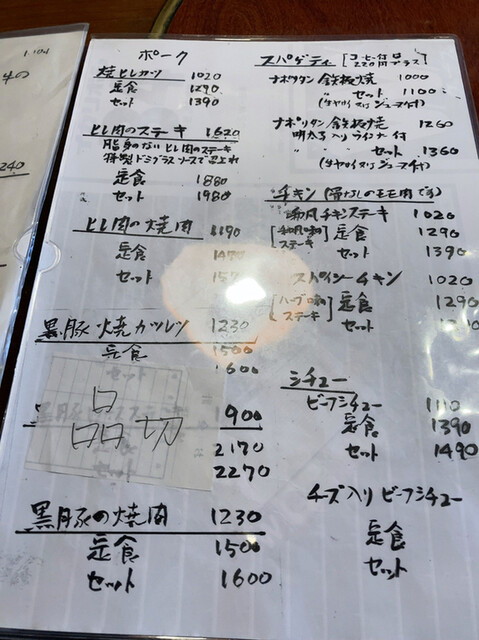 ポーク
焼ヒレカツ 1020
定食 1290
セット 1390
ヒレ肉のステキ 1620
脂身のない ヒレ肉のステーキ
特製ドミグラスソースで召上れ
定食 1880
セット 1980
ヒレ肉の焼肉 1190
定食
セット
黒豚焼カツレツ 1230
定食 1500
セット 1600
品切
1900
2170
2270
黒豚の焼肉 1230
定食 1500
セット 1600
スパゲティ
ナポリタン 鉄板焼 1000
〃 セット 1100
ナポリタン 鉄板焼 1260
明太子入りウインナー付
〃 セット 1360
チキン (骨なしのモモ肉です)
和風チキンステーキ 1020
定食 1290
セット 1390
スパイシーチキン 1020
[ハーブ味 ステーキ] 定食 1290
セット
シチュー
ビーフシチュー 1110
定食 1390
セット 1490
チーズ入りビーフシチュー
定食
セット
1,104
240